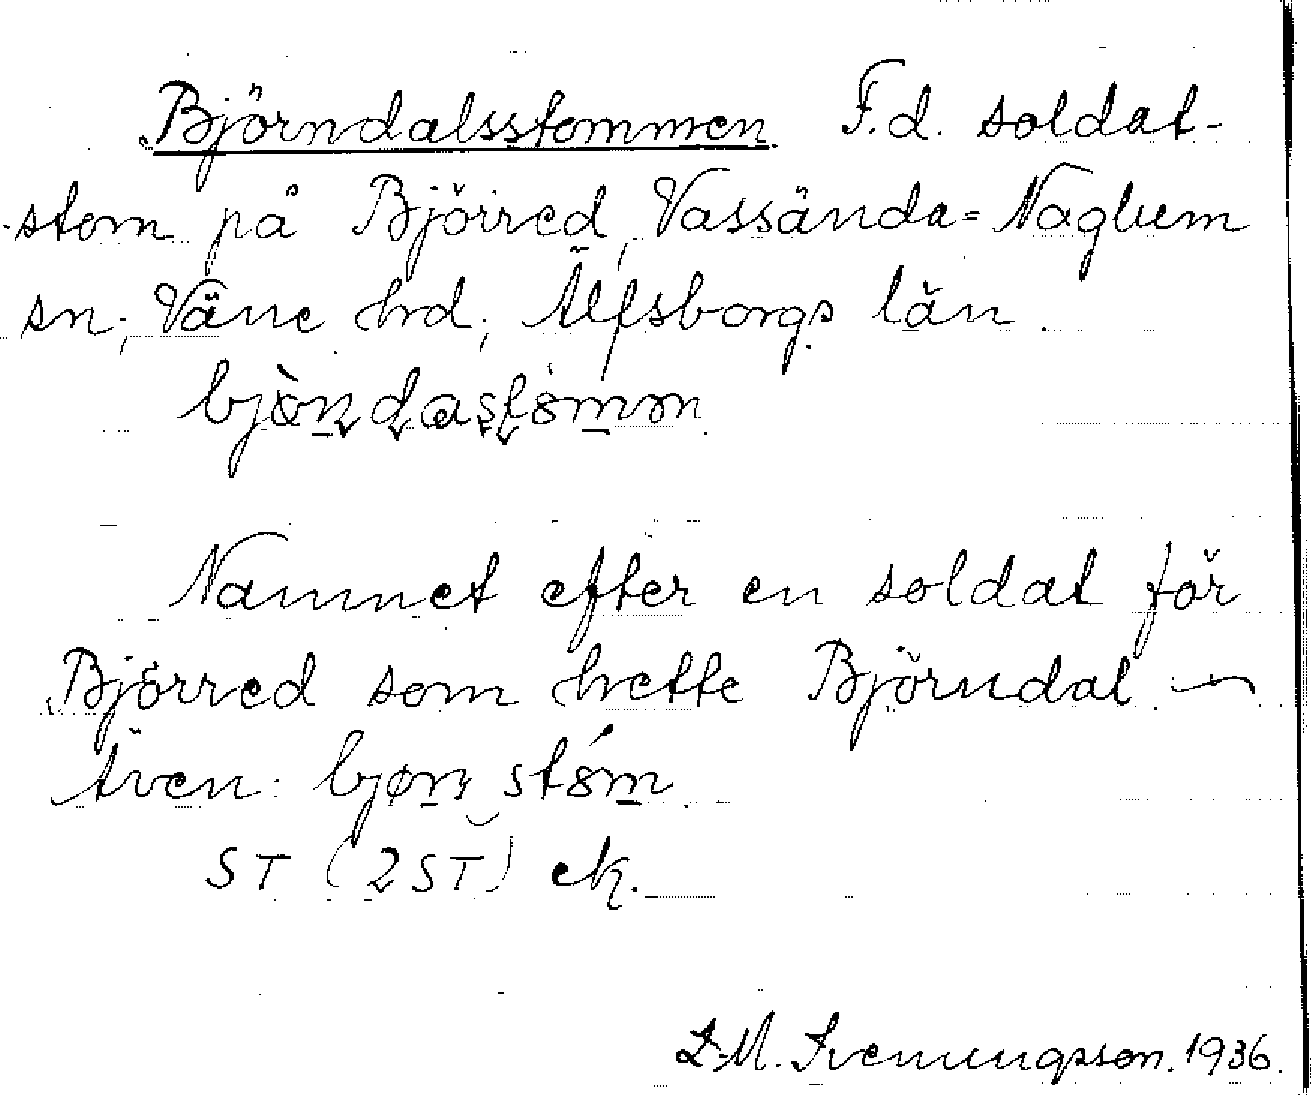 Björndalsstommen. F.d. soldat-
stom på Björred, Vassända-Naglum
sn, Väne hrd, Älfsborgs län.
Namnet efter en soldat för
Björred som hette Björndal —
Även: bjøn stom
ST (2ST) ek.
D.M. Svenungsson. 1936.